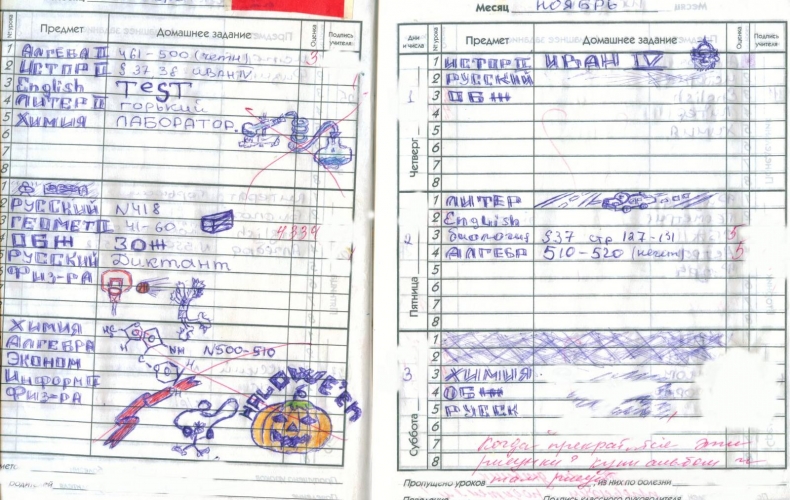 Предмет Домашнее задание Оценка Подпись учителя
1 АЛГЕБРА II 461-500 (чётн) 3
2 ИСТОР II § 37 38 ИВАН IV
3 English TEST
4 ЛИТЕР II ГОРЬКИЙ
5 ХИМИЯ ЛАБОРАТОР.
6
7
8
1
2 РУССКИЙ N418
3 ГЕОМЕТ II 41-60
4 ОБЖ ЗОЖ
РУССКИЙ Диктант
ФИЗ-РА
ХИМИЯ
АЛГЕБРА N500-510
ЭКОНОМ
ИНФОРМ II
ФИЗ-РА
HALLOWE'EN
Месяц НОЯБРЬ
Дни и числа № урока Предмет Домашнее задание Оценка Подпись учителя
1 Четверг
1 ИСТОР II ИВАН IV
2 РУССКИЙ
3 ОБЖ
4
5
6
7
8
2 Пятница
1 ЛИТЕР
2 English
3 биология § 37 стр 127-131 5
4 АЛГЕБР 510-520 (нечёт) 5
5
6
7
8
3 Суббота
1
2
3 ХИМИЯ
4 ОБЖ
5 РУССК
6
7 Когда прекрат. все эти
8 рисунки? Купи альбом и
там рисуй
Пропущено уроков из них по болезни
Подпись классного руководителя